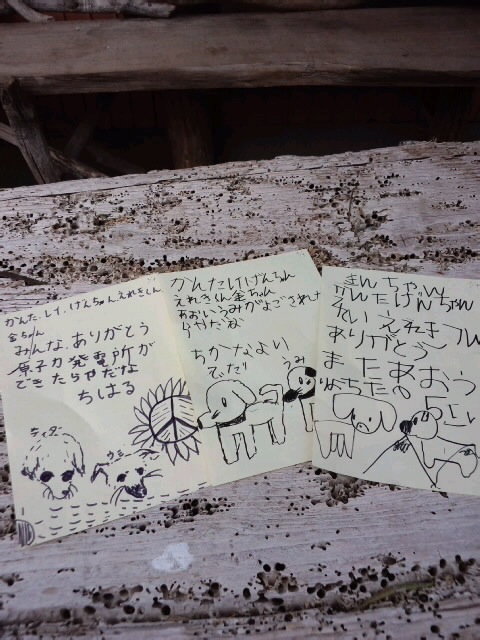 かんた.レイ.げんちゃん.えれきくん
金ちゃん
みんな、ありがとう
原子力発電所が
できたらやだな
ちはる
ティダー
ウミー
かんたレイげんちゃん
えれきくん金ちゃん
あおいうみがよごされた
らやだな
ちかなより
うみ
きんちゃん
かんたげんちゃん
えれきくん
ありがとう
またあおう